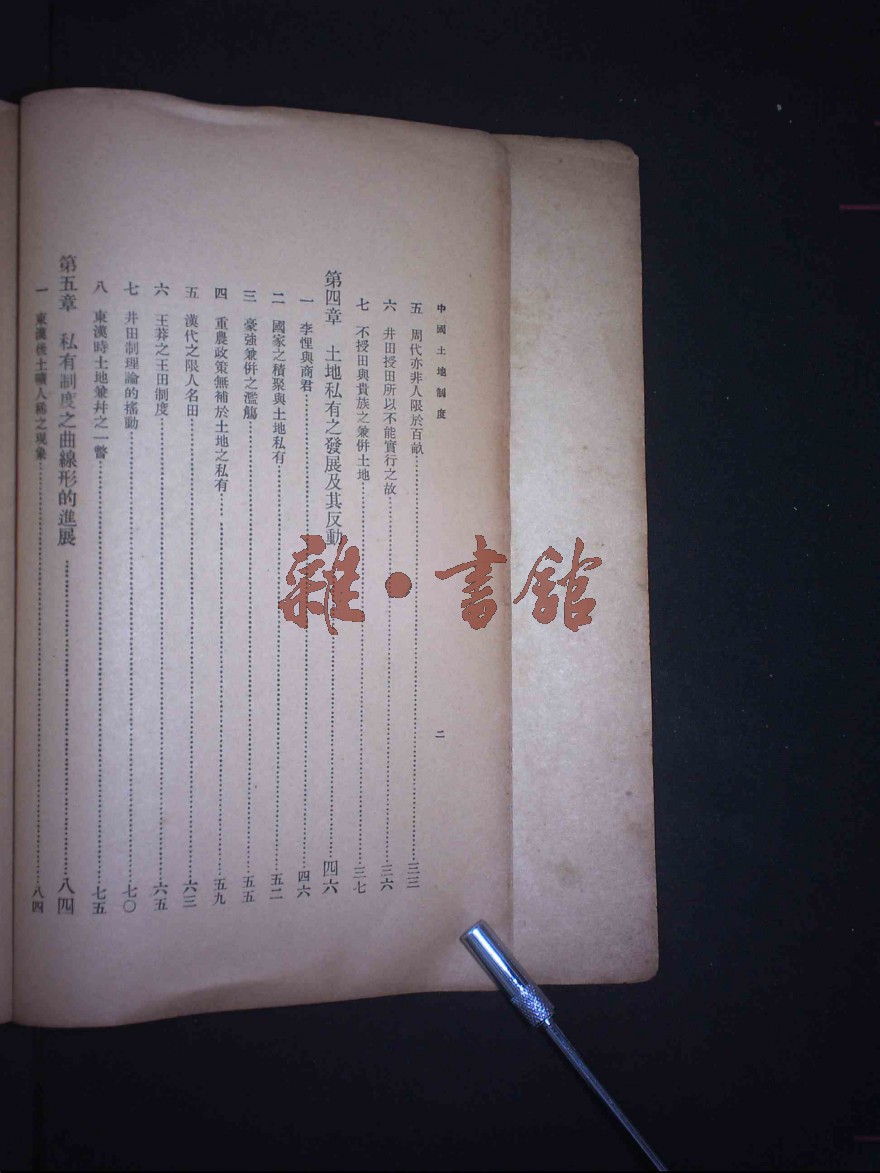 中國土地制度
二
五　周代亦非人限於百畝……三三
六　井田授田所以不能實行之故……三六
七　不授田與貴族之兼併土地……三七
第四章　土地私有之發展及其反動……四六
一　李悝與商君……四六
二　國家之積聚與土地私有……五二
三　豪強兼併之濫觴……五五
四　重農政策無補於土地之私有……五九
五　漢代之限人名田……六三
六　王莽之王田制度……六五
七　井田制理論的搖動……七〇
八　東漢時土地兼幷之一瞥……七五
第五章　私有制度之曲線形的進展……八四
一　東漢後土曠人稀之現象……八四
雜·書館